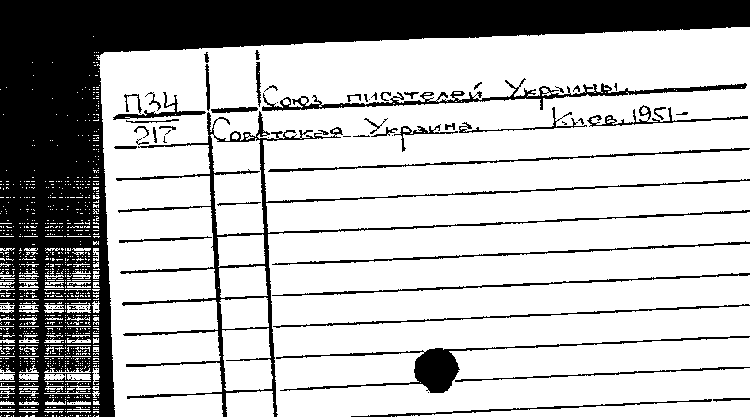 П34 Союз писателей Украины.
217 Советская Украина. Киев, 1951-